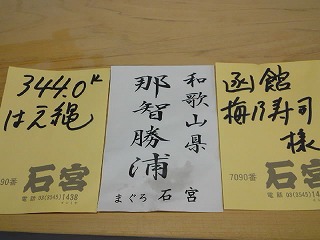 344.0K
はえ縄
7090番
石宮
電話 03(3545)1438
和歌山県
那智勝浦
まぐろ 石宮
函館
梅乃寿司
様
7090番
石宮
電話 03(3545)1438